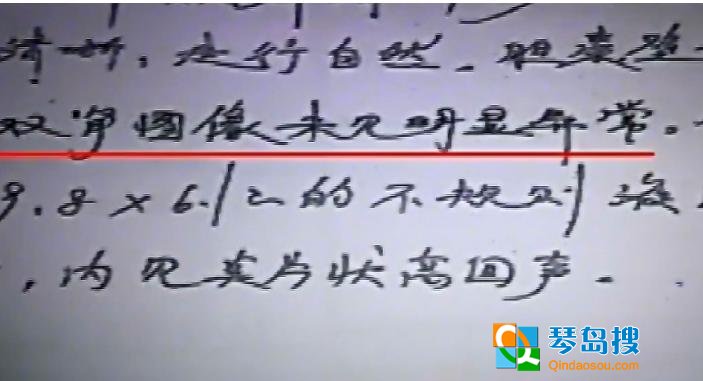 清晰，走行自然。胆囊
双肾图像未见明显异常。
9.8×6.1cm的不规则液
，内见片状高回声。
琴岛搜
Qindaosou.com